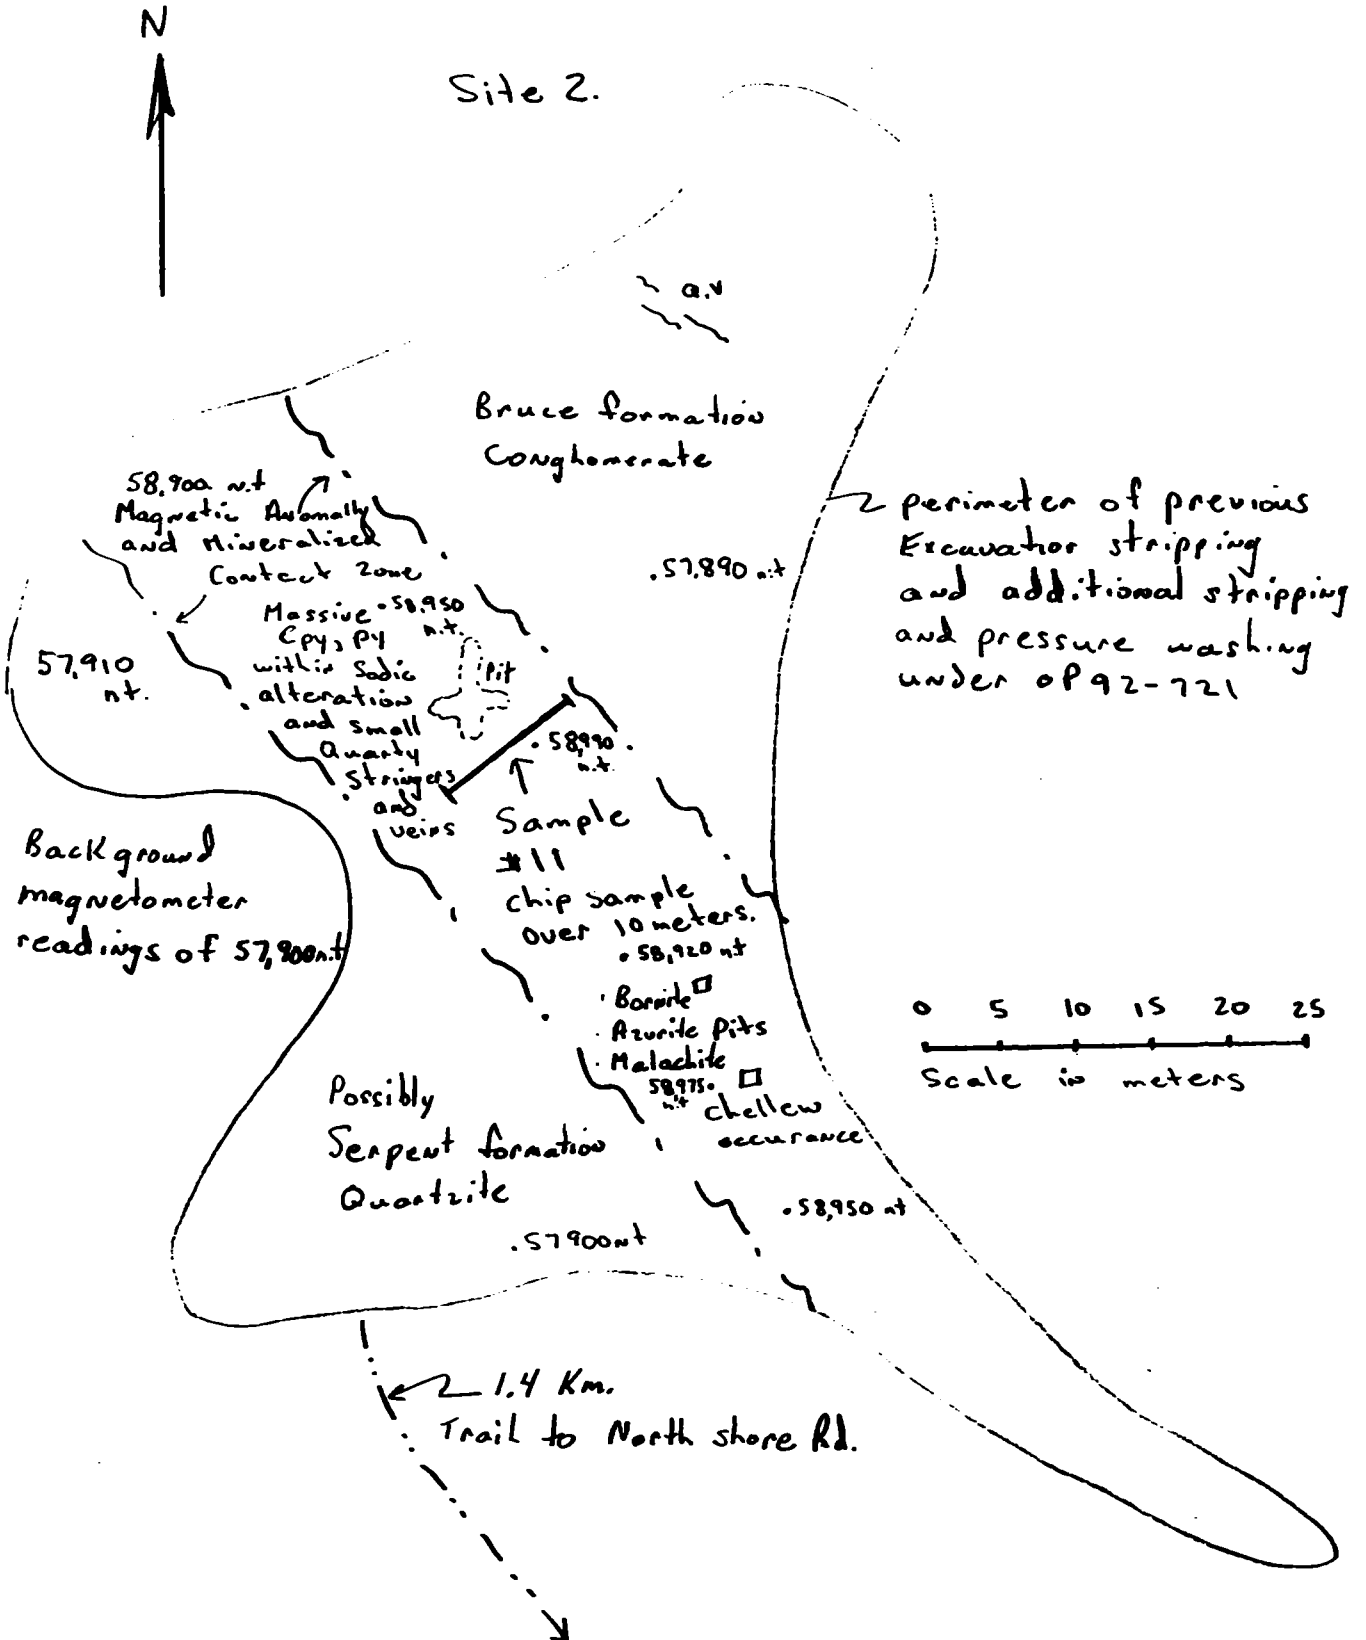 N
Site 2.
a.v
Bruce formation
Conglomerate
58,900 n.t
Magnetic Anomally
and Mineralized
Contact Zone
perimeter of previous
Excavator stripping
and additional stripping
and pressure washing
under OP92-721
.57,890 n.t
Massive
Cpy, py
within Sodic
alteration
and small
Quartz
Stringers
and
veins
.58,950
n.t.
Pit
57,910
n.t.
.58,990
n.t.
Sample
#11
chip sample
over 10 meters.
Background
magnetometer
readings of 57,900n.t
.58,920 n.t
. Bornite
. Azurite Pits
. Malachite
58,975.
n.t
chellew
occurance
0 5 10 15 20 25
Scale in meters
Possibly
Serpent formation
Quartzite
.58,950 nt
.57900nt
1.4 Km.
Trail to North shore Rd.